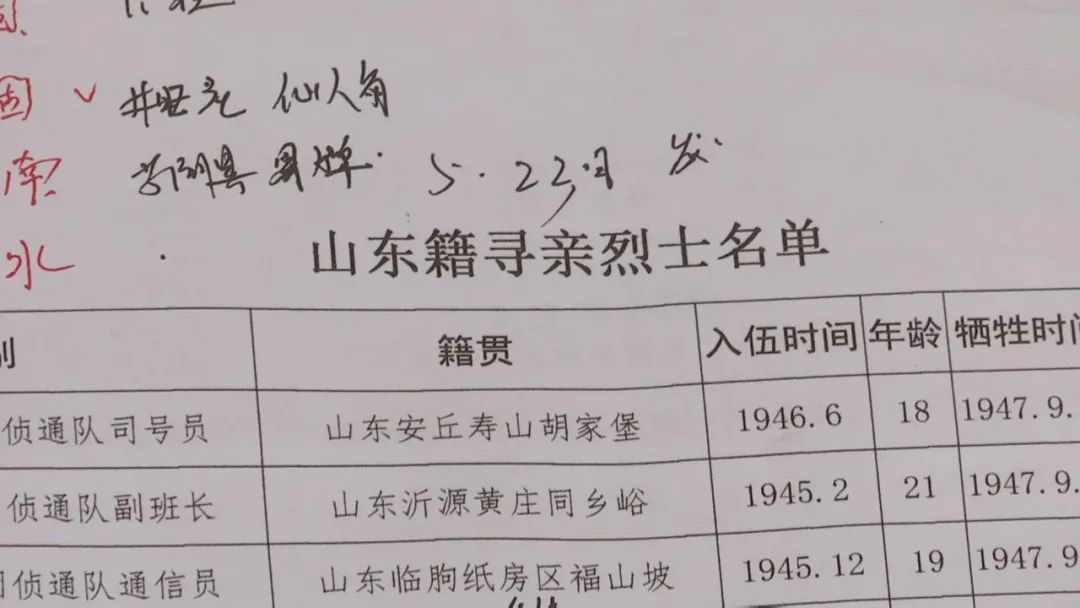 固 仙人角
南 5.23日 发
水
山东籍寻亲烈士名单
别 籍贯 入伍时间 年龄 牺牲时间
侦通队司号员 山东安丘寿山胡家堡 1946.6 18 1947.9.
侦通队副班长 山东沂源黄庄同乡峪 1945.2 21 1947.9.
侦通队通信员 山东临朐纸房区福山坡 1945.12 19 1947.9